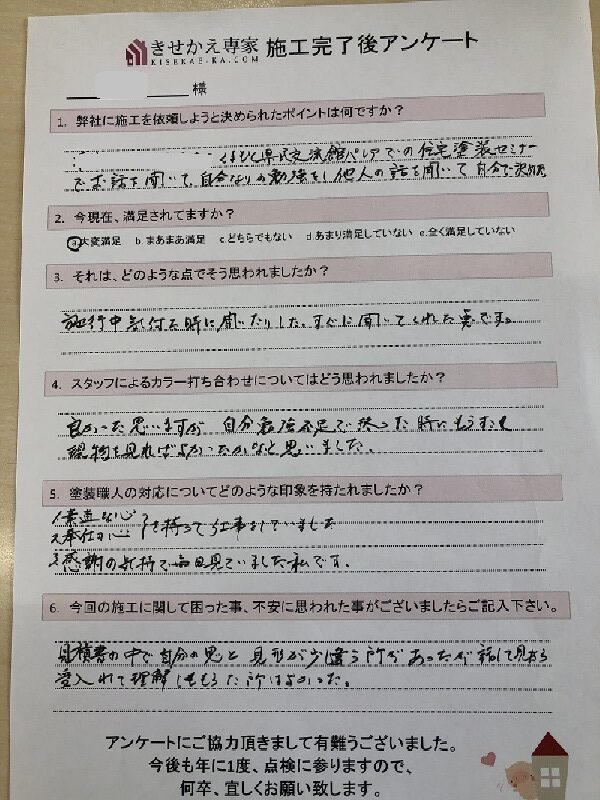 きせかえ専家
KISEKAE-KA.COM
施工完了後アンケート
様
1. 弊社に施工を依頼しようと決められたポイントは何ですか?
くまもと県民交流館パレアでの住宅塗装セミナー
でお話を聞いて、自分なりの勉強をし他人の話を聞いて自分で決
2. 今現在、満足されてますか?
a.大変満足 b.まあまあ満足 c.どちらでもない d.あまり満足していない e.全く満足していない
3. それは、どのような点でそう思われましたか?
施行中気付た時に聞いたりした。すぐに聞いてくれた事です。
4. スタッフによるカラー打ち合わせについてはどう思われましたか?
良かった思いますが 自分勉強不足で終った時にもうすこし
現物を見ればよかったかなと思いました。
5. 塗装職人の対応についてどのような印象を持たれましたか?
1素直な心
2奉仕の心 を持って仕事をしていました
3感謝の気持で毎日見ていました私です。
6. 今回の施工に関して困った事、不安に思われた事がございましたらご記入下さい。
見積書の中で自分の思と見形が少違う所があったが
受入れて理解しもらた所はよかった。
アンケートにご協力頂きまして有難うございました。
今後も年に1度、点検に参りますので、
何卒、宜しくお願い致します。